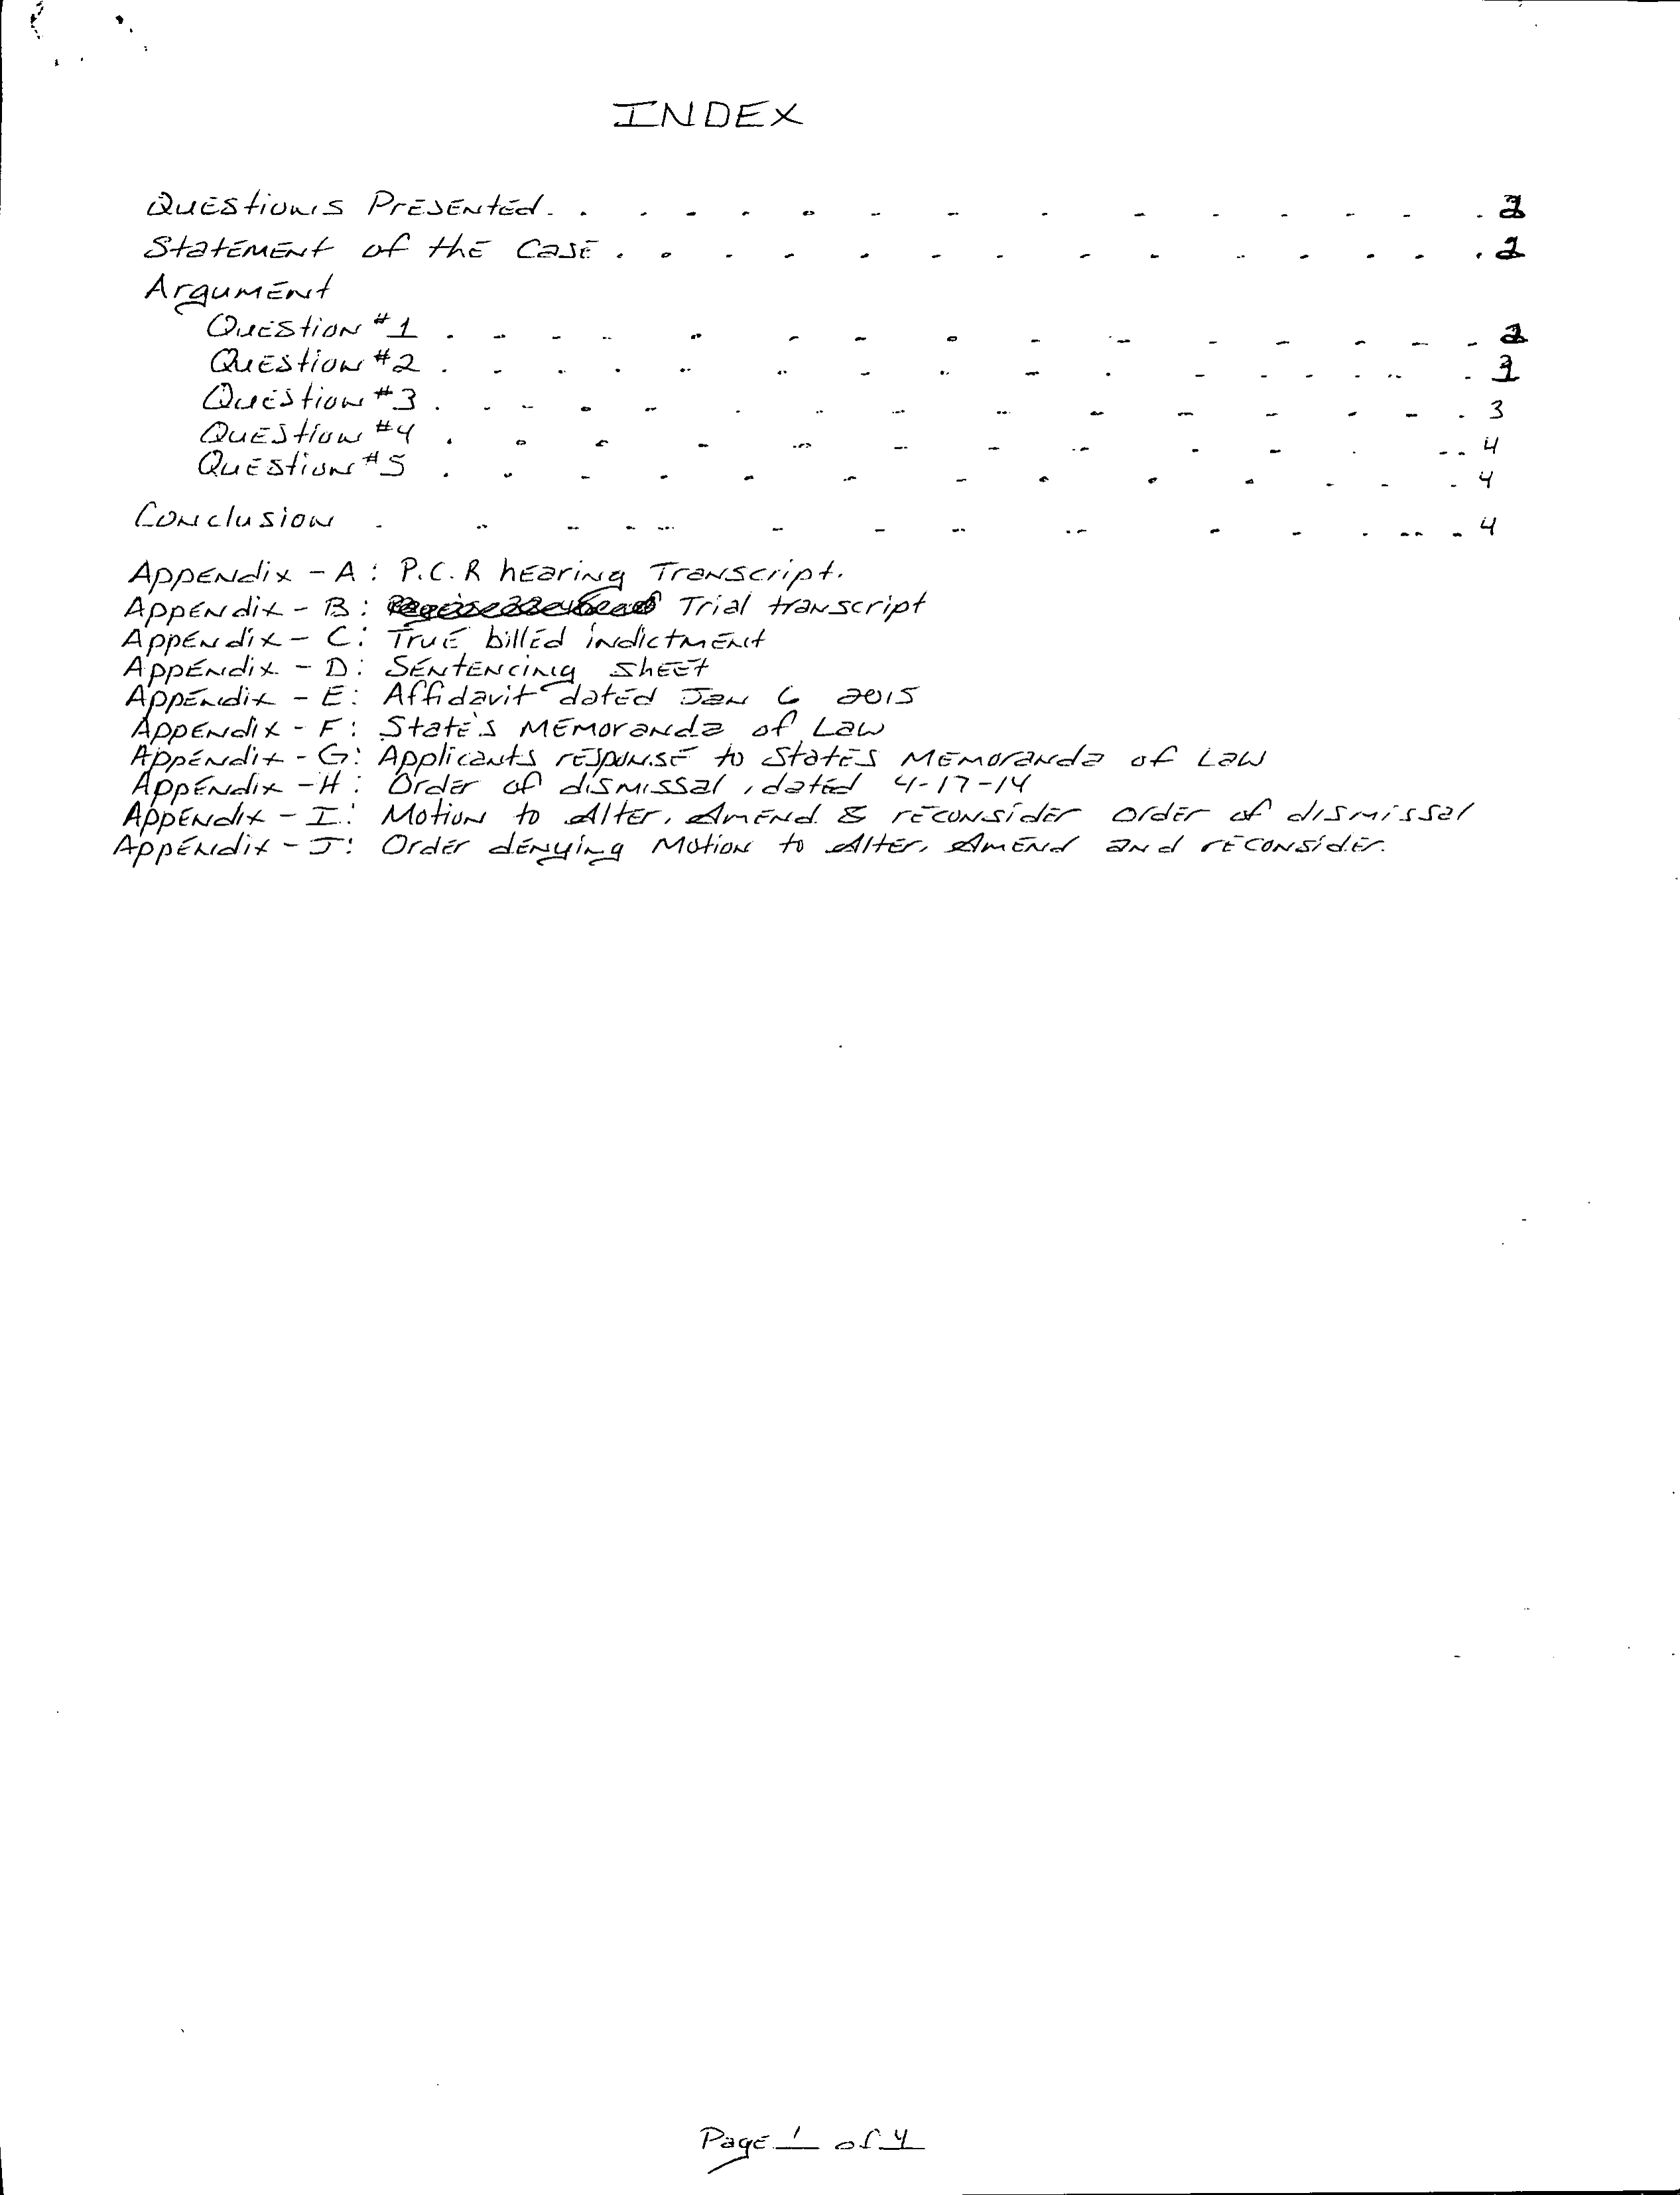 INDEX
Questions Presented . . . . . . . . . . . . . . . 2
Statement of the Case . . . . . . . . . . . . . . . 2
Argument
Question #1 . . . . . . . . . . . . . . . 2
Question #2 . . . . . . . . . . . . . . .
Question #3 . . . . . . . . . . . . . . . 3
Question #4 . . . . . . . . . . . . 4
Question #5 . . . . . . . . . . . . . 4
Conclusion . . . . . . . . . . . . . . . 4
Appendix - A : P.C.R hearing Transcript.
Appendix - B : Trial transcript
Appendix - C : True billed indictment
Appendix - D : Sentencing sheet
Appendix - E : Affidavit dated Jan 6 2015
Appendix - F : State's Memoranda of Law
Appendix - G : Applicants response to States Memoranda of Law
Appendix - H : Order of dismissal , dated 4-17-14
Appendix - I : Motion to Alter, Amend & reconsider order of dismissal
Appendix - J : Order denying Motion to Alter, Amend and reconsider.
Page 1 of 4